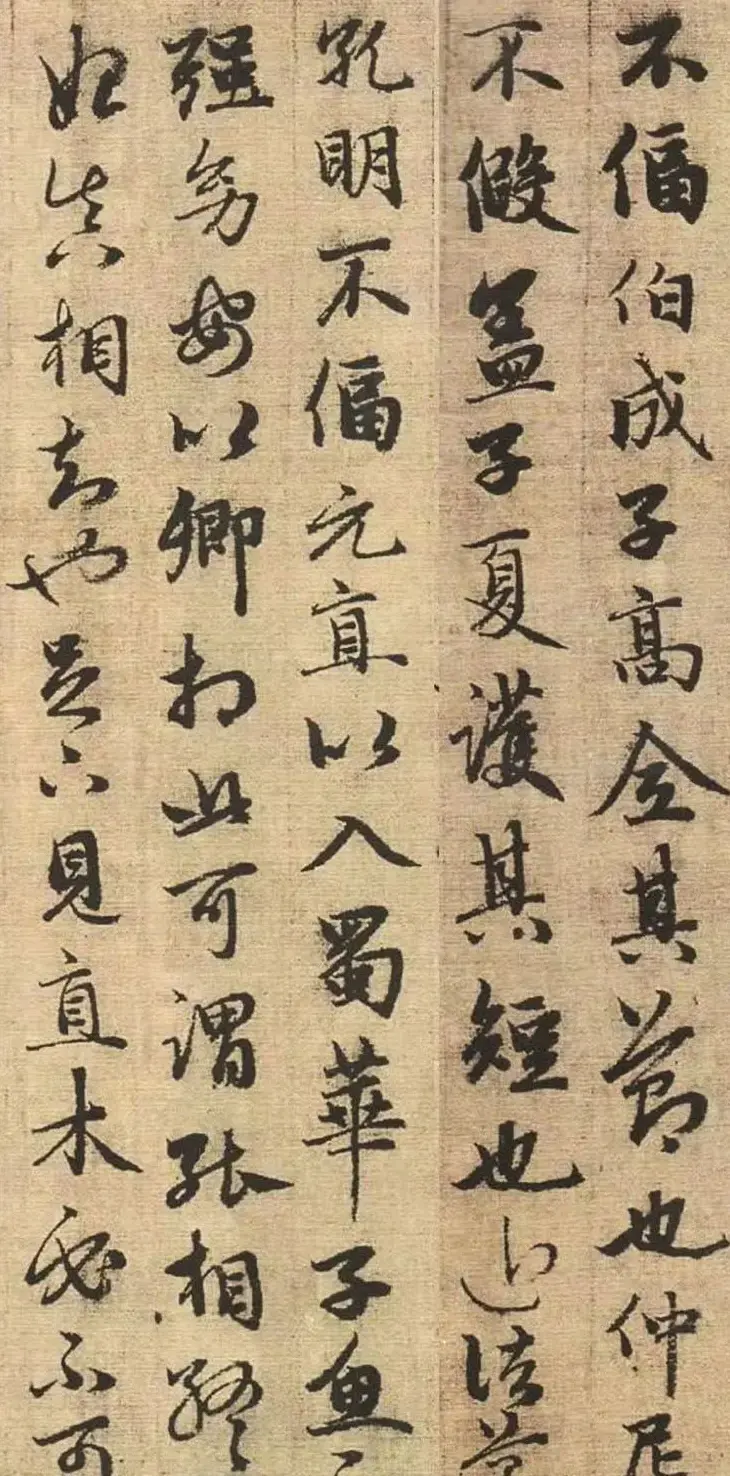 不偪伯成子高全其節也仲尼
不假盖子夏護其短也近諸葛
孔明不偪元直以入蜀華子魚
强幼安以卿相此可謂能相終
始真相知也足下見直木必不可